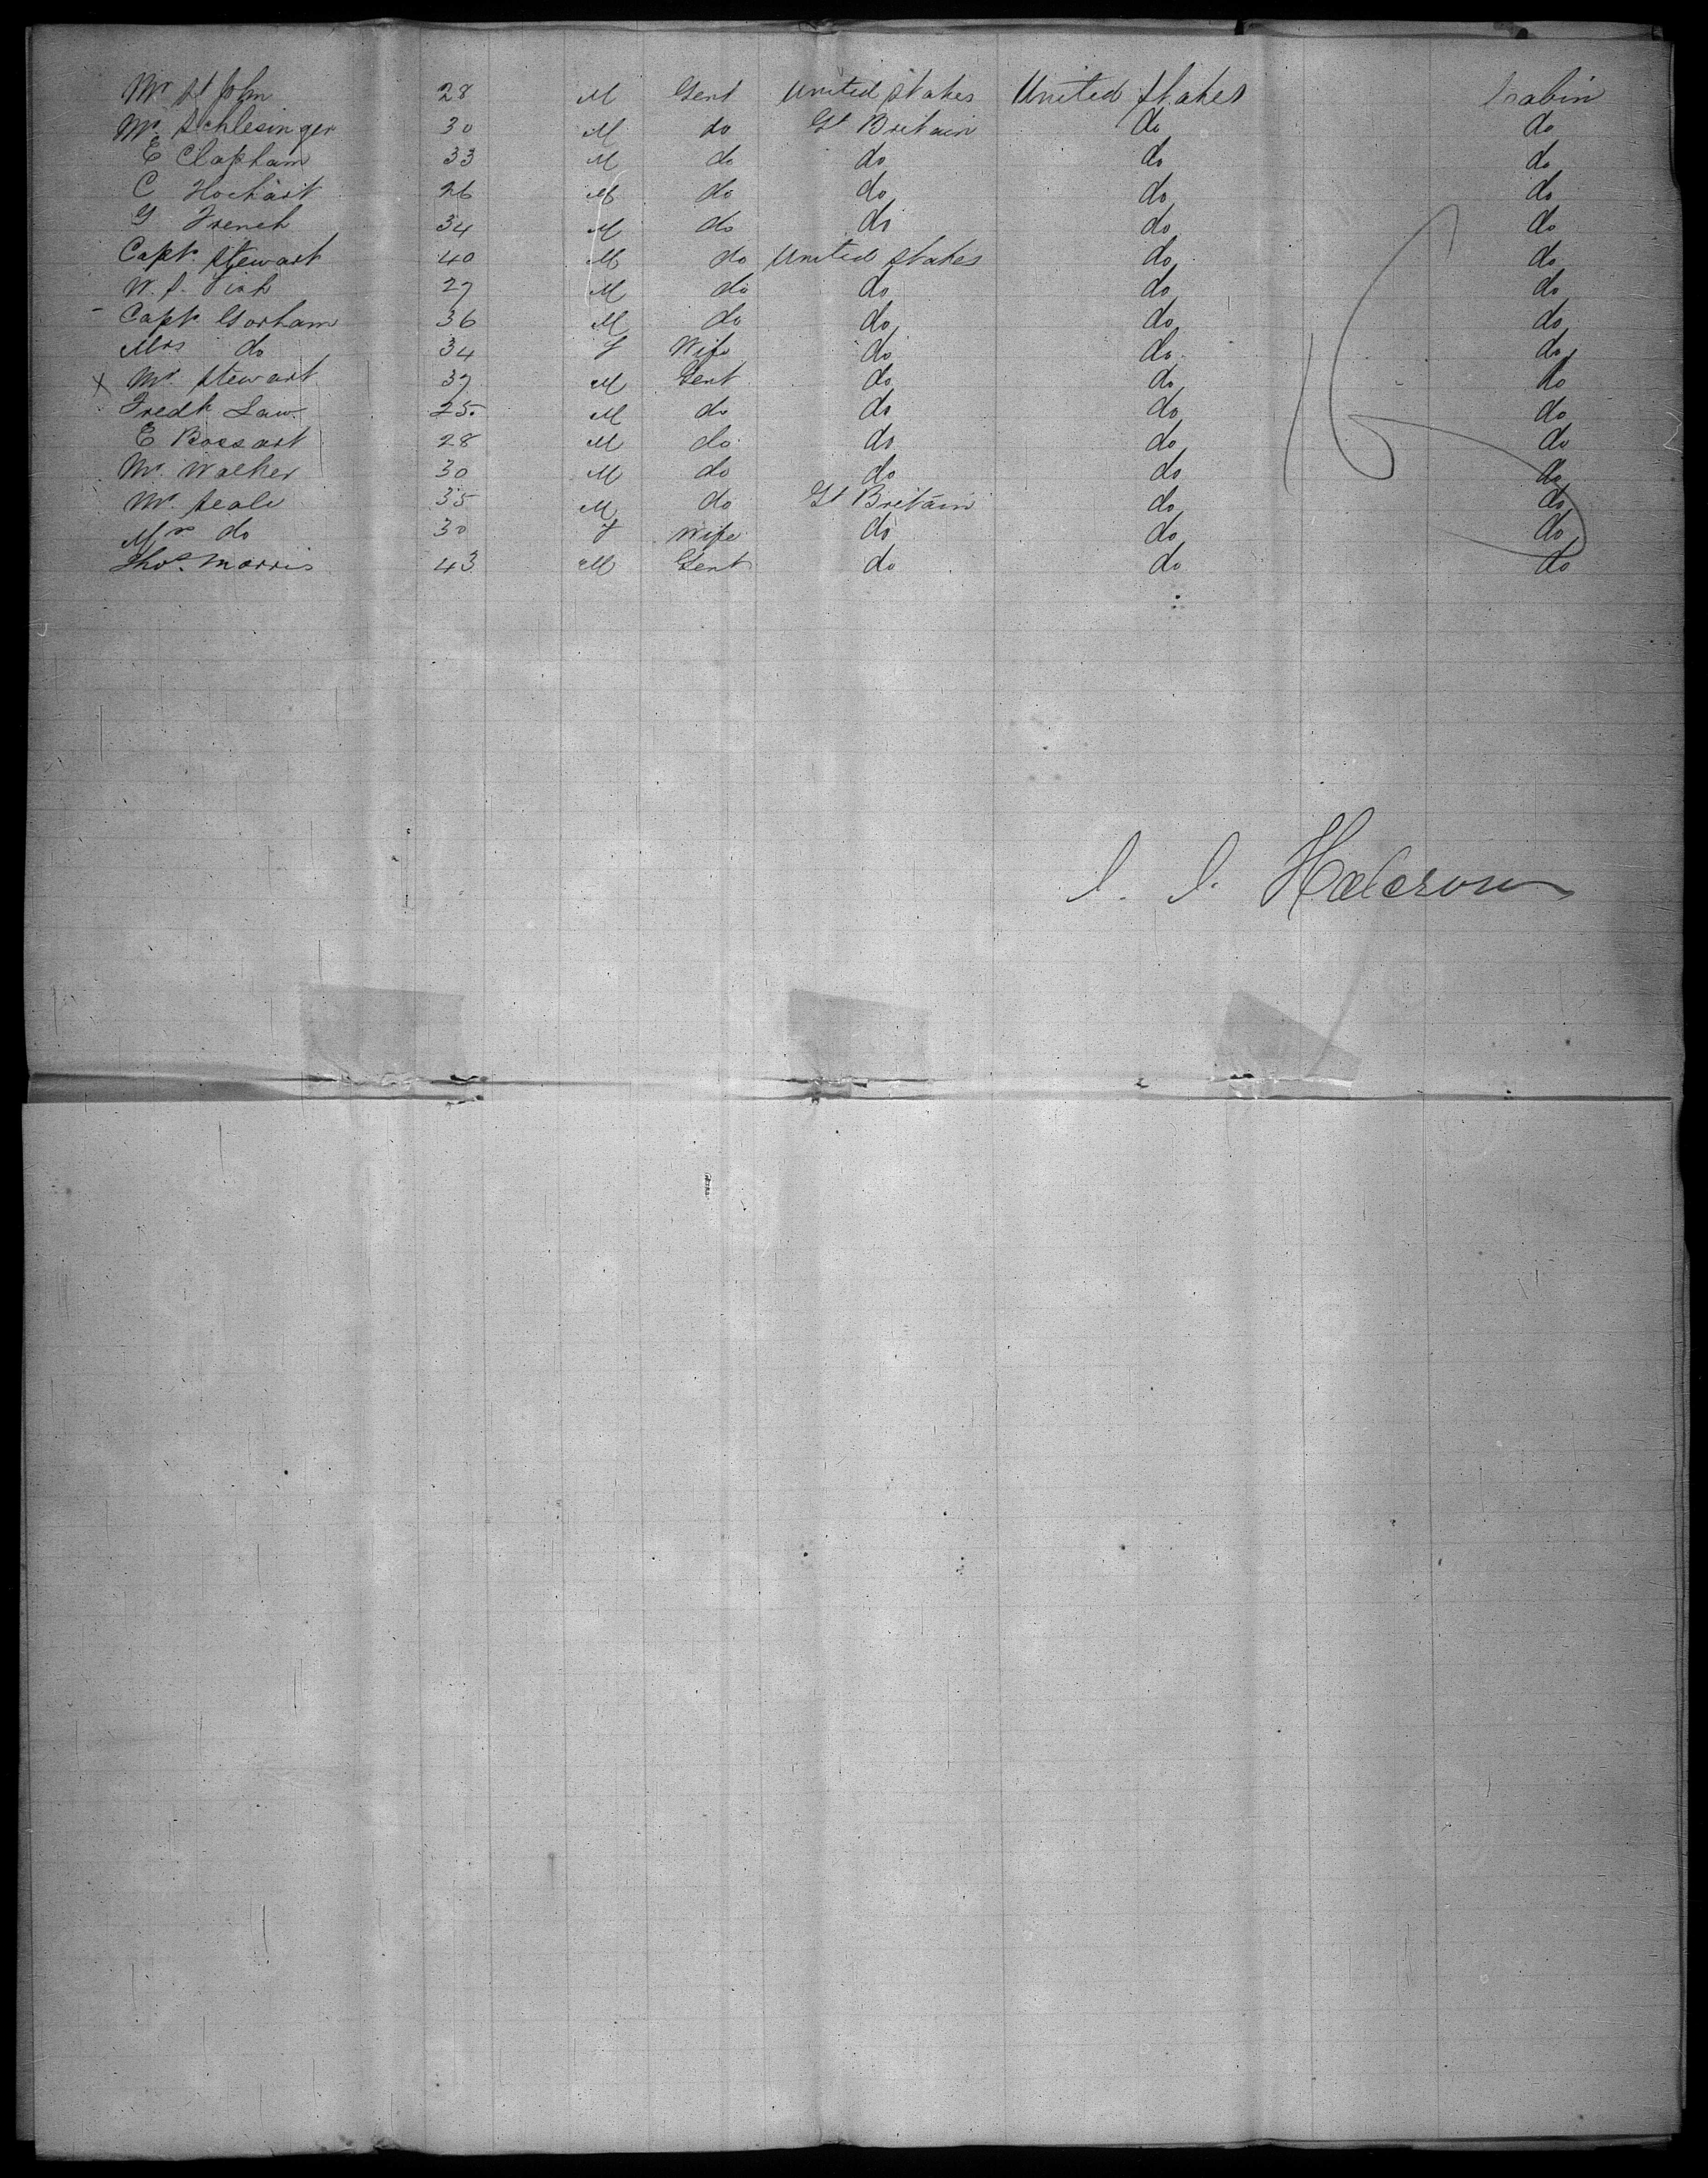 Mr St John 28 M Gent United States United States Cabin
Mr Schlesinger 30 M do Gt Britain do do
E Clapham 33 M do do do do
C Hochart 26 M do do do do
G French 34 M do do do do
Capt Stewart 40 M do United States do do
W. S. Fish 27 M do do do do
- Capt Gorham 36 M do do do do
Mrs do 34 f Wife do do do
x Mr Stewart 37 M Gent do do do
Fredk Law 25 M do do do do
E Bossart 28 M do do do do
Mr Walker 30 M do do do do
Mr Seale 35 M do Gt Britain do do
Mrs do 30 f Wife do do do
Thos Morris 43 M Gent do do do
16
Halcrow